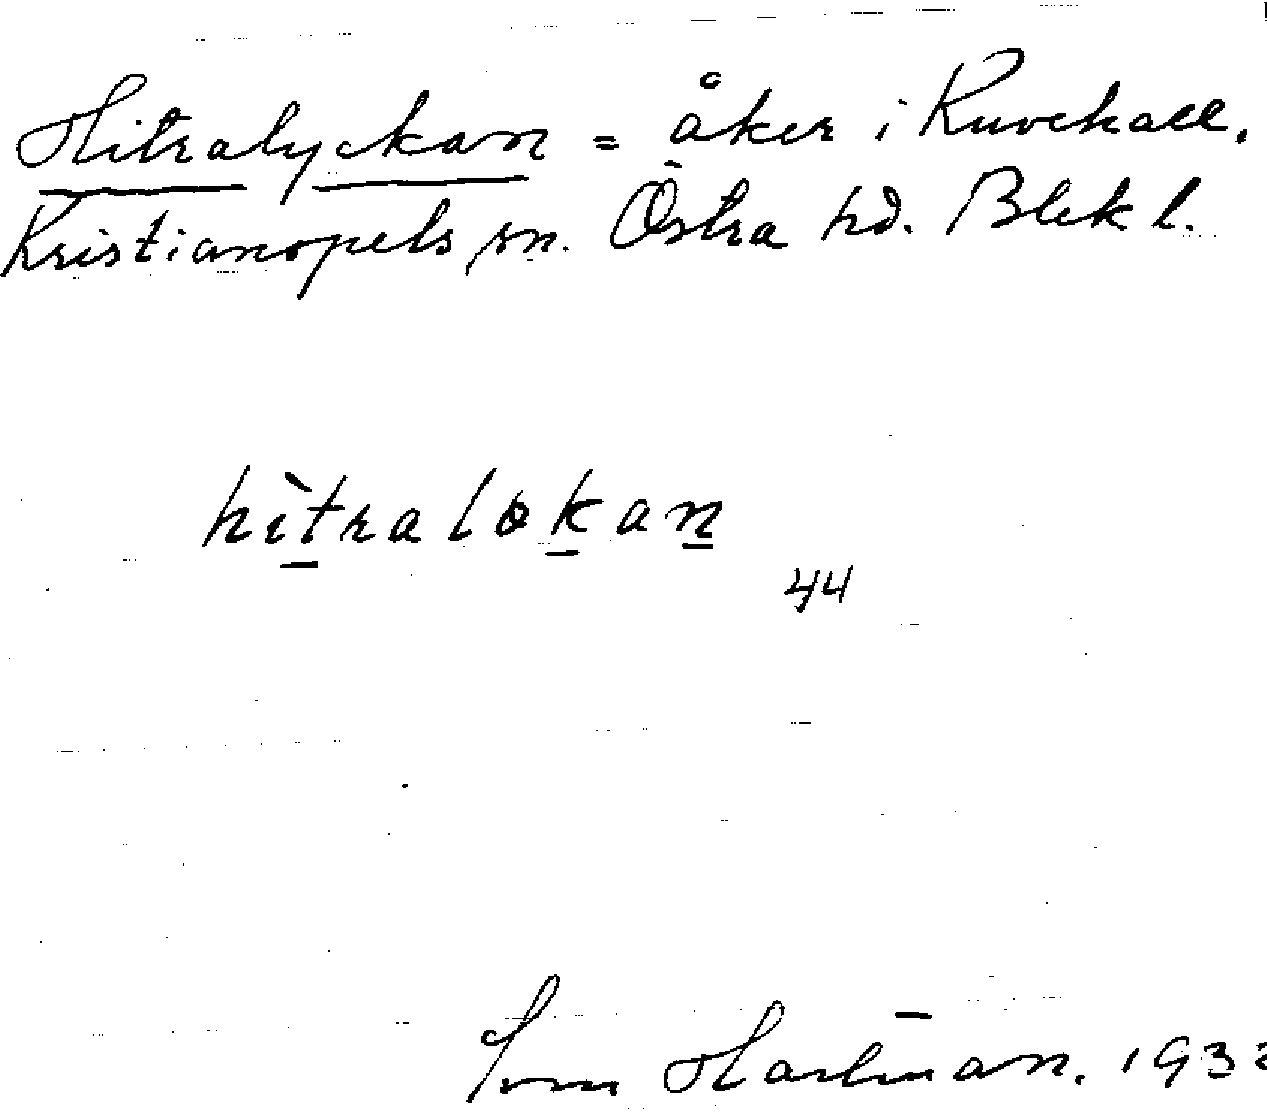 Hitralyckan = åker i Ruvekall.
Kristianopels sn. Östra hd. Blek l.
hìtralokan
44
Hartman. 193